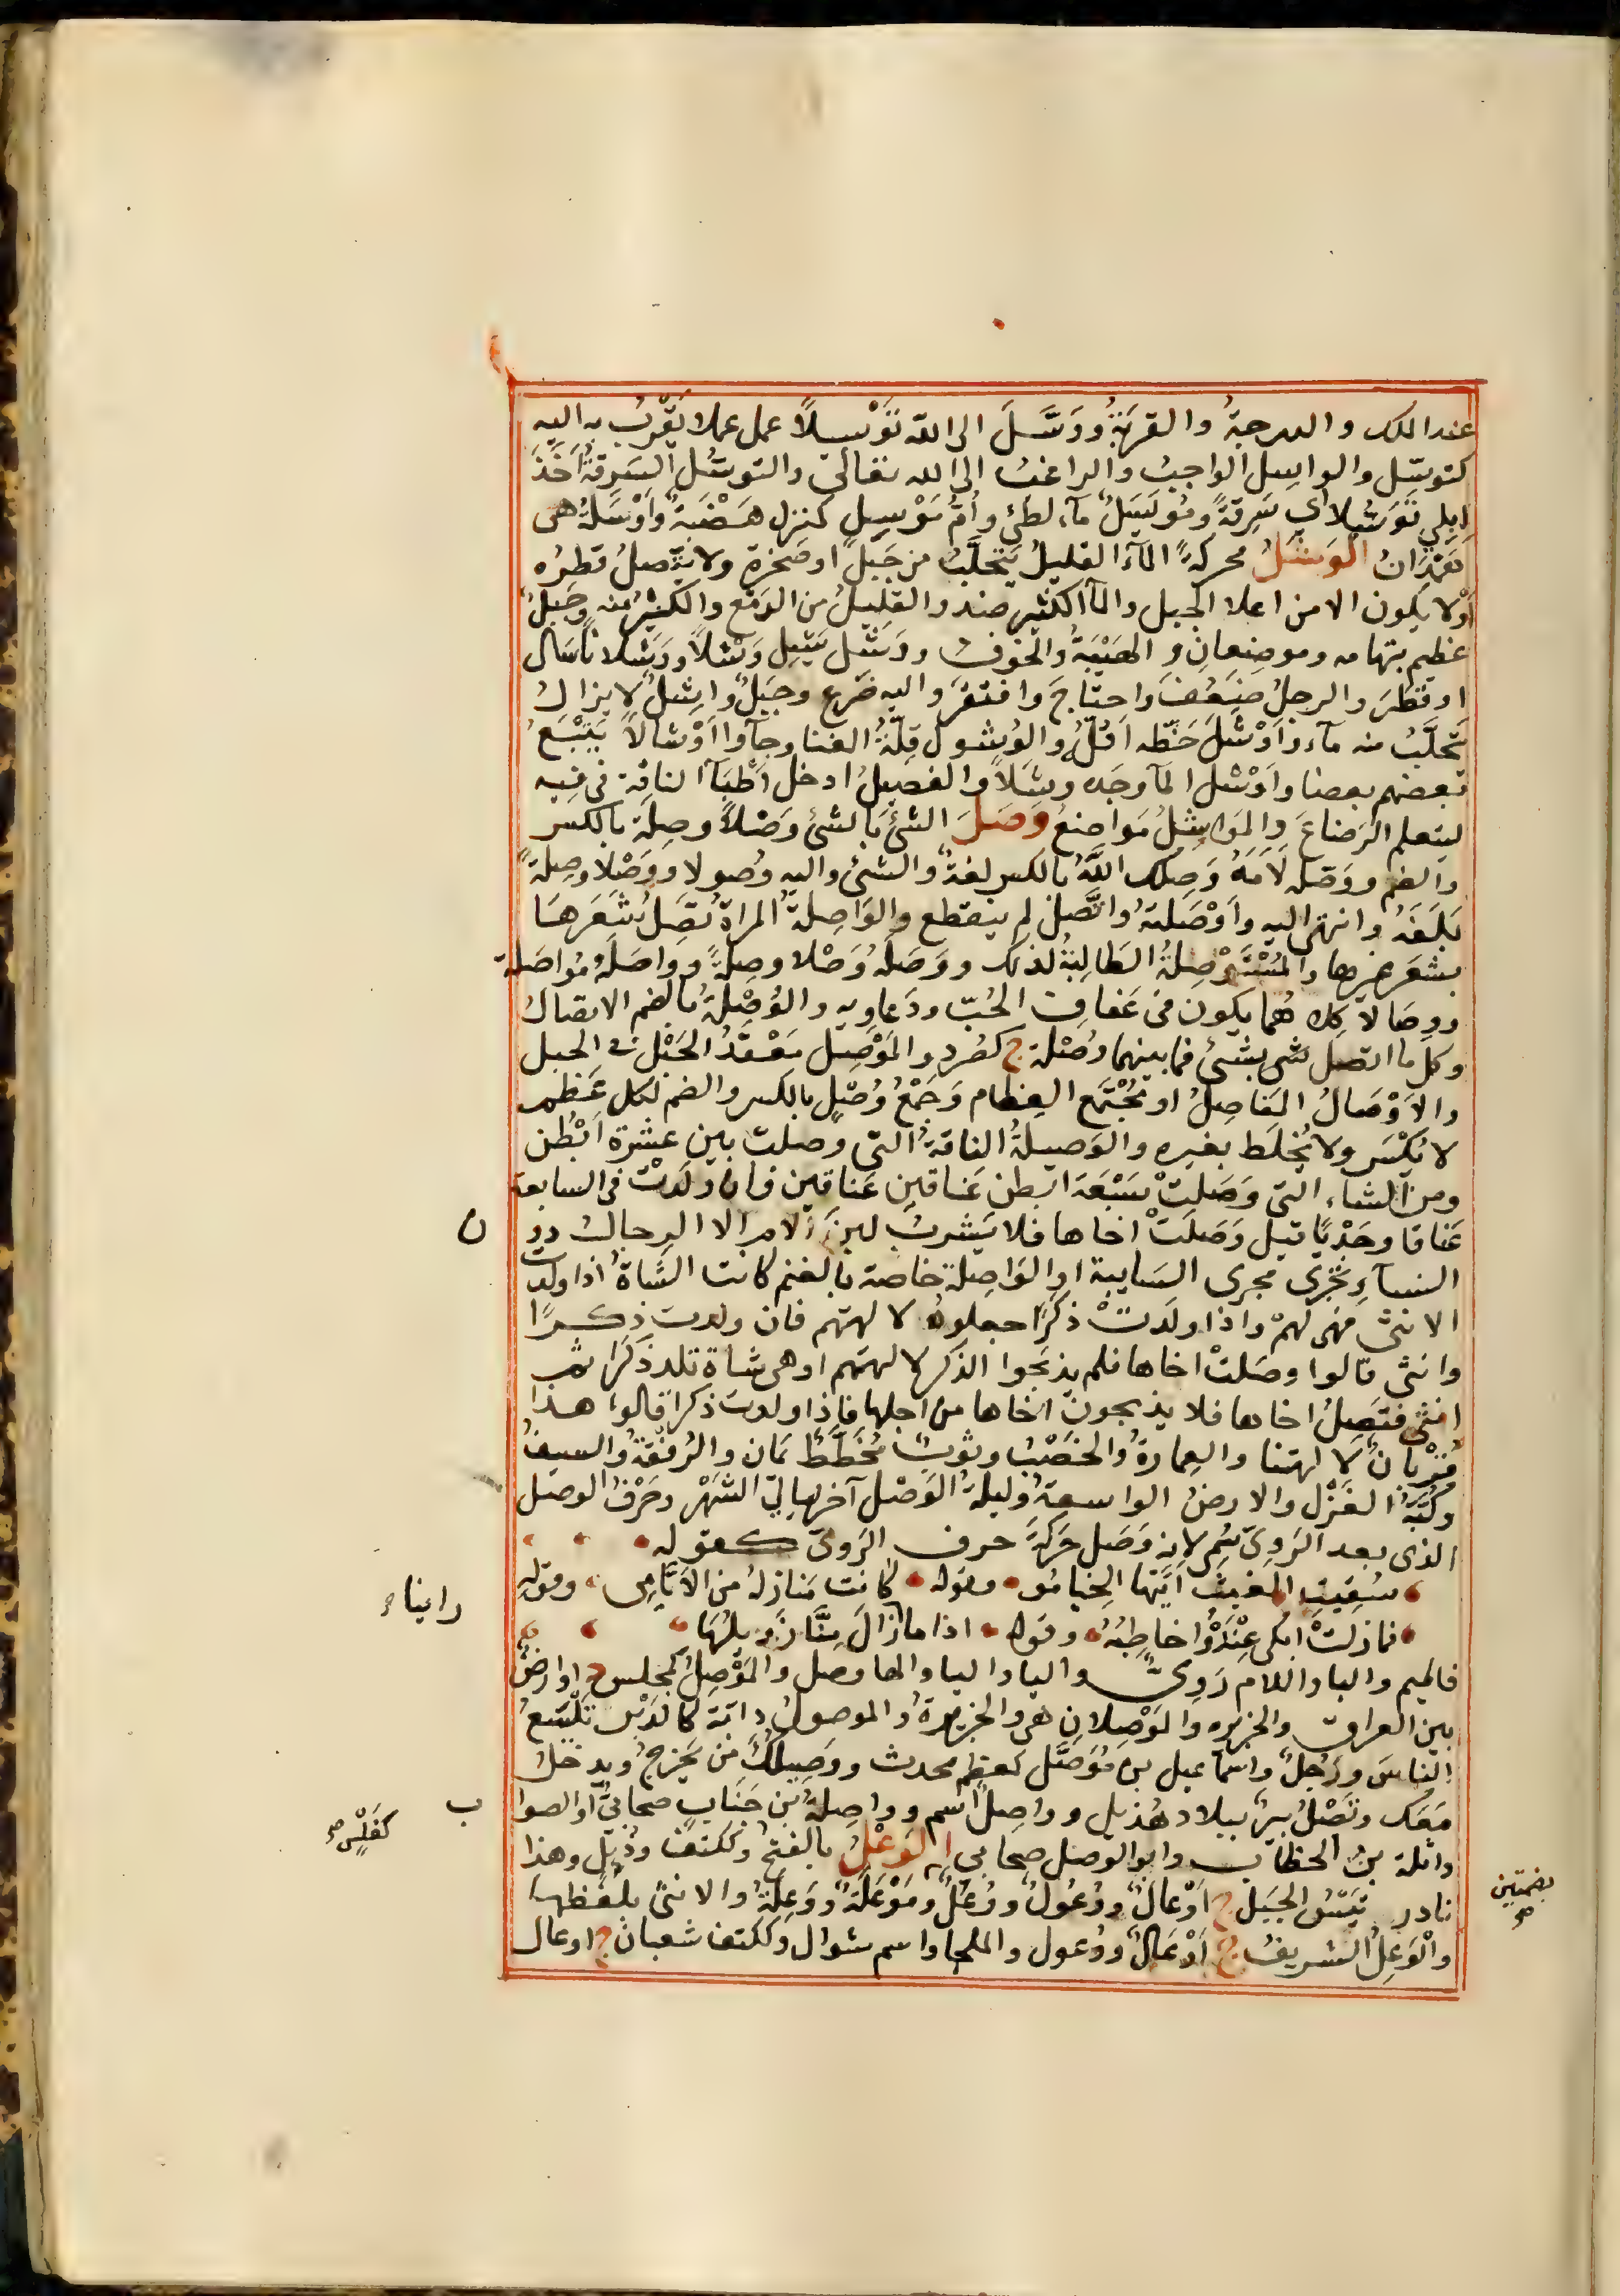 عند الملك والدرجة والقربة ووسّل الى الله توسيلاً عمل عملا تقرب به اليه
كتوسّل والواسل الواجب والراغب الى الله تعالى والتوسّل السرقة اخذ
ابلي توسّلا اي سرقة ومويسل ماء لطئ وام موسل كمنزل هضبة واوسلة هى
همدان الوشل محركة الماء القليل يتحلّب من جبل او صخرة ولا يتّصل قطره
او لا يكون الا من اعلا الجبل والماالكثير ضد والقليل من الدمع والكثير منه وجبل
عظيم بتهامه وموضعان والهيبة والخوف ووشل يشل وشلاً ووشلانا سال
او قطر والرجل ضعف واحتاج وافتقر واليه ضرع وجبل واشل لا يزال
يتحلّب منه ماء واوشل حظه اقلّه والوشول قلّة الغنا وجاوا اوشالاً يتبع
بعضهم بعضا واوشل المآ وجده وشلاً والفصيل ادخل اطبآ الناقة فى فيه
ليتعلم الرضاع والمواشل مواضع وصل الشئ بالشئ وصلاً وصلة بالكسر
والضم ووصّله لأمه وصلك الله بالكسر لغة والشئ واليه وصولا ووصلا وصلة
بلغه وانتهى اليه واوصله واتّصل لم ينقطع والواصلة المراة تصل شعرها
بشعر غيرها والمستوصلة الطالبة لذلك ووصله وصلا وصلة وواصله مواصلة
ووصالا كلاهما يكون فى عفاف الحبّ ودعاويه والوصلة بالضم الاتصال
وكل ما اتصل شى بشئ فما بينهما وصلة ج كصرد والموصل معقد الحبل فى الحبل
والاوصال المفاصل او مجتمع العظام وجمع وصل بالكسر والضم لكل عظم
لا يكسر ولا يخلط بغيره والوصيلة الناقة التى وصلت بين عشرة ابطن
ومن الشاء التى وصلت سبعة ابطن عناقين عناقين فان ولدت فى السابعة
عناقا وجديا قيل وصلت اخاها فلا يشرب لبن الام الا الرجال دون
النسآء وتجرى مجرى السايبة او الواصلة خاصة بالغنم كانت الشاة اذا ولدت
الانثى فهى لهم واذا ولدت ذكرا جعلوه لالهتهم فان ولدت ذكرا
وانثى قالوا وصلت اخاها فلم يذبحوا الذكر لالهتهم او هى شاة تلد ذكرا ثم
انثى فتصل اخاها فلا يذبحون اخاها من اجلها فاذا ولدت ذكرا قالوا هذا
قربان لالهتنا والعمارة والخصب وثوب مخطّط يمان والرفقة والسيف
وكبّة الغزل والارض الواسعة وليلة الوصل آخر ليالي الشهر وحرف الوصل
الذى بعد الروى سمى لانه وصل حركة حرف الروى كقوله
سقيت الغيث ايّتها الخيامو وقوله كانت منازله من الايّامى وقوله
فمازلت ابكى عنده واخاطبه وقوله اذا ما زال منّا زويلها
فالميم والبا واللام روى والياو اليا والها وصل والموصل كمجلس د او ارض
بين العراق والجزيره والموصلان هى والجزيرة والموصول دابّة كالدبر تلسع
الناس ورجل واسماعيل بن موصّل كمعظم محدث ووصيلك من يخرج ويدخل
معك وتصل بير ببلاد هذيل وواصل اسم وواصلة بن جناب صحابى او الصواب
واثلة بن الخطاب وابو الوصل صحابي الوعل بالفتح وككتف ودئل وهذا
نادر تيس الجبل ج اوعال ووعول ووعل وموعلة ووعلة والانثى بلفظها
والوعل الشريف ج اوعال ووعول والملجا واسم شوال وككتف شعبان ج اوعال
ن
وايضا
ب
كفلس صح
بضمتين
صح